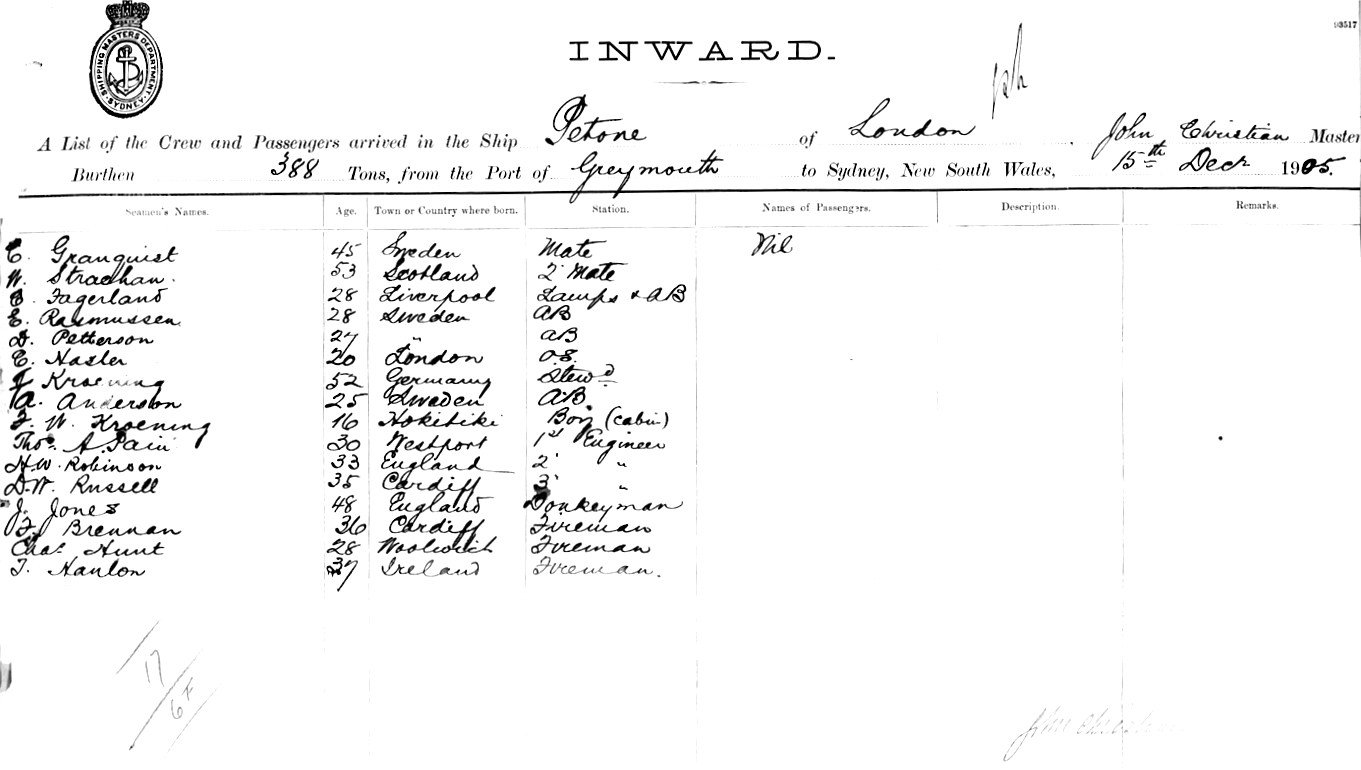 93517
SHIPPING MASTERS DEPARTMENT SYDNEY
INWARD.
A List of the Crew and Passengers arrived in the Ship Petone of London John Christian Master
Burthen 388 Tons, from the Port of Greymouth to Sydney, New South Wales, 15th Decr 1905.
Seamen's Names. Age. Town or Country where born. Station. Names of Passengers. Description. Remarks.
C. Granquist 45 Sweden Mate Nil
W. Strachan. 53 Scotland 2 Mate
Fagerland 28 Liverpool Lamps & AB
E. Rasmussen 28 Sweden AB
Petterson 27 " AB
E. Hasler 20 London O.S.
Kroening 52 Germany Stewd
A. Anderson 25 Sweden AB
F. W. Kroening 16 Hokitiki Boy (cabin)
Thos. A. Pain 30 Westport 1st Engineer
H.W. Robinson 33 England 2 "
D.W. Russell 35 Cardiff 3 "
J. Jones 48 England Donkeyman
F. Brennan 36 Cardiff Fireman
Chas. Hunt 28 Woolwich Fireman
T. Hanlon 37 Ireland Fireman.
17
6F
John Christian